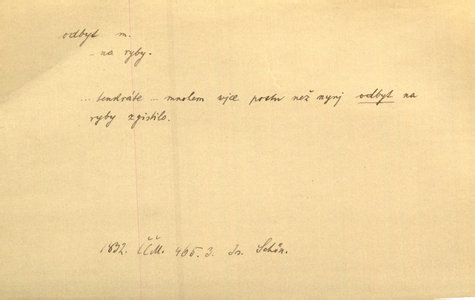 odbyt m.
– na ryby.
... tenkráte .. mnohem více postu než nynj odbyt na
ryby zgistilo.
1832. ČČM. 465.3. Jr. Schön.